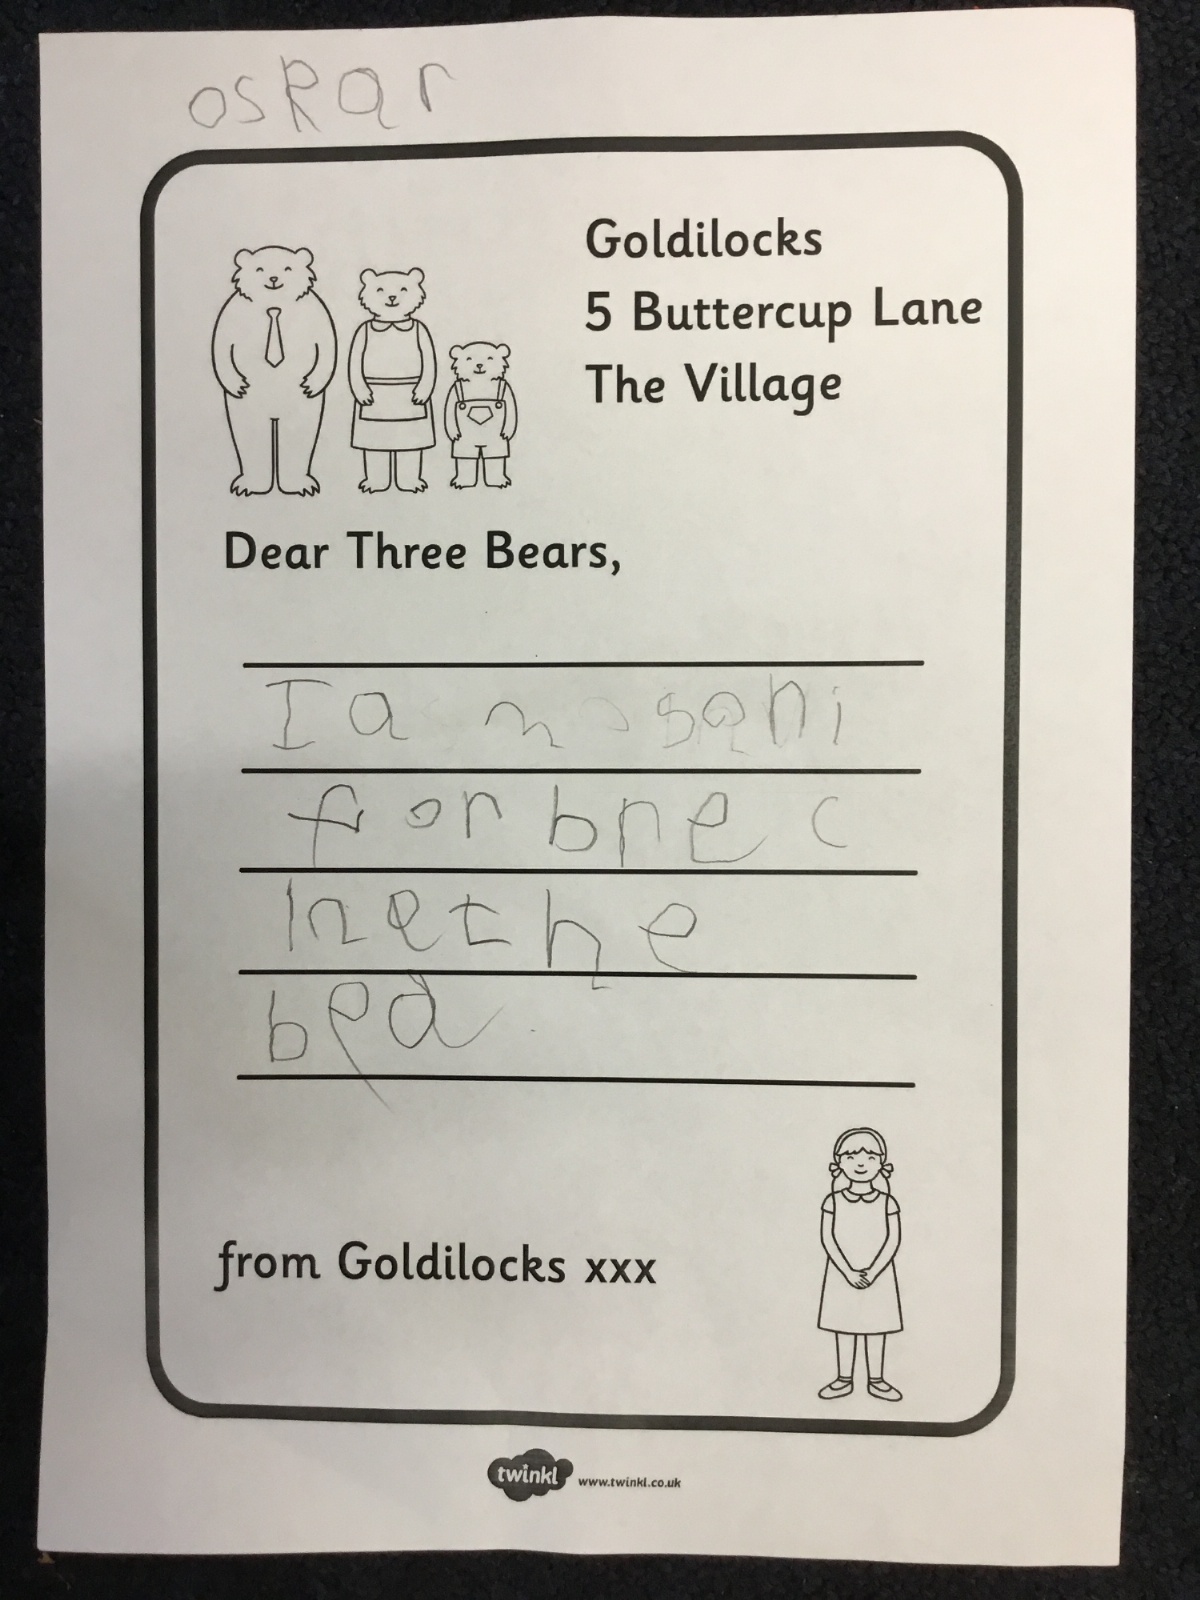 oskar
Goldilocks
5 Buttercup Lane
The Village
Dear Three Bears,
I a m sani
for bre c
in et h e
bed
from Goldilocks xxx
twinkl www.twinkl.co.uk